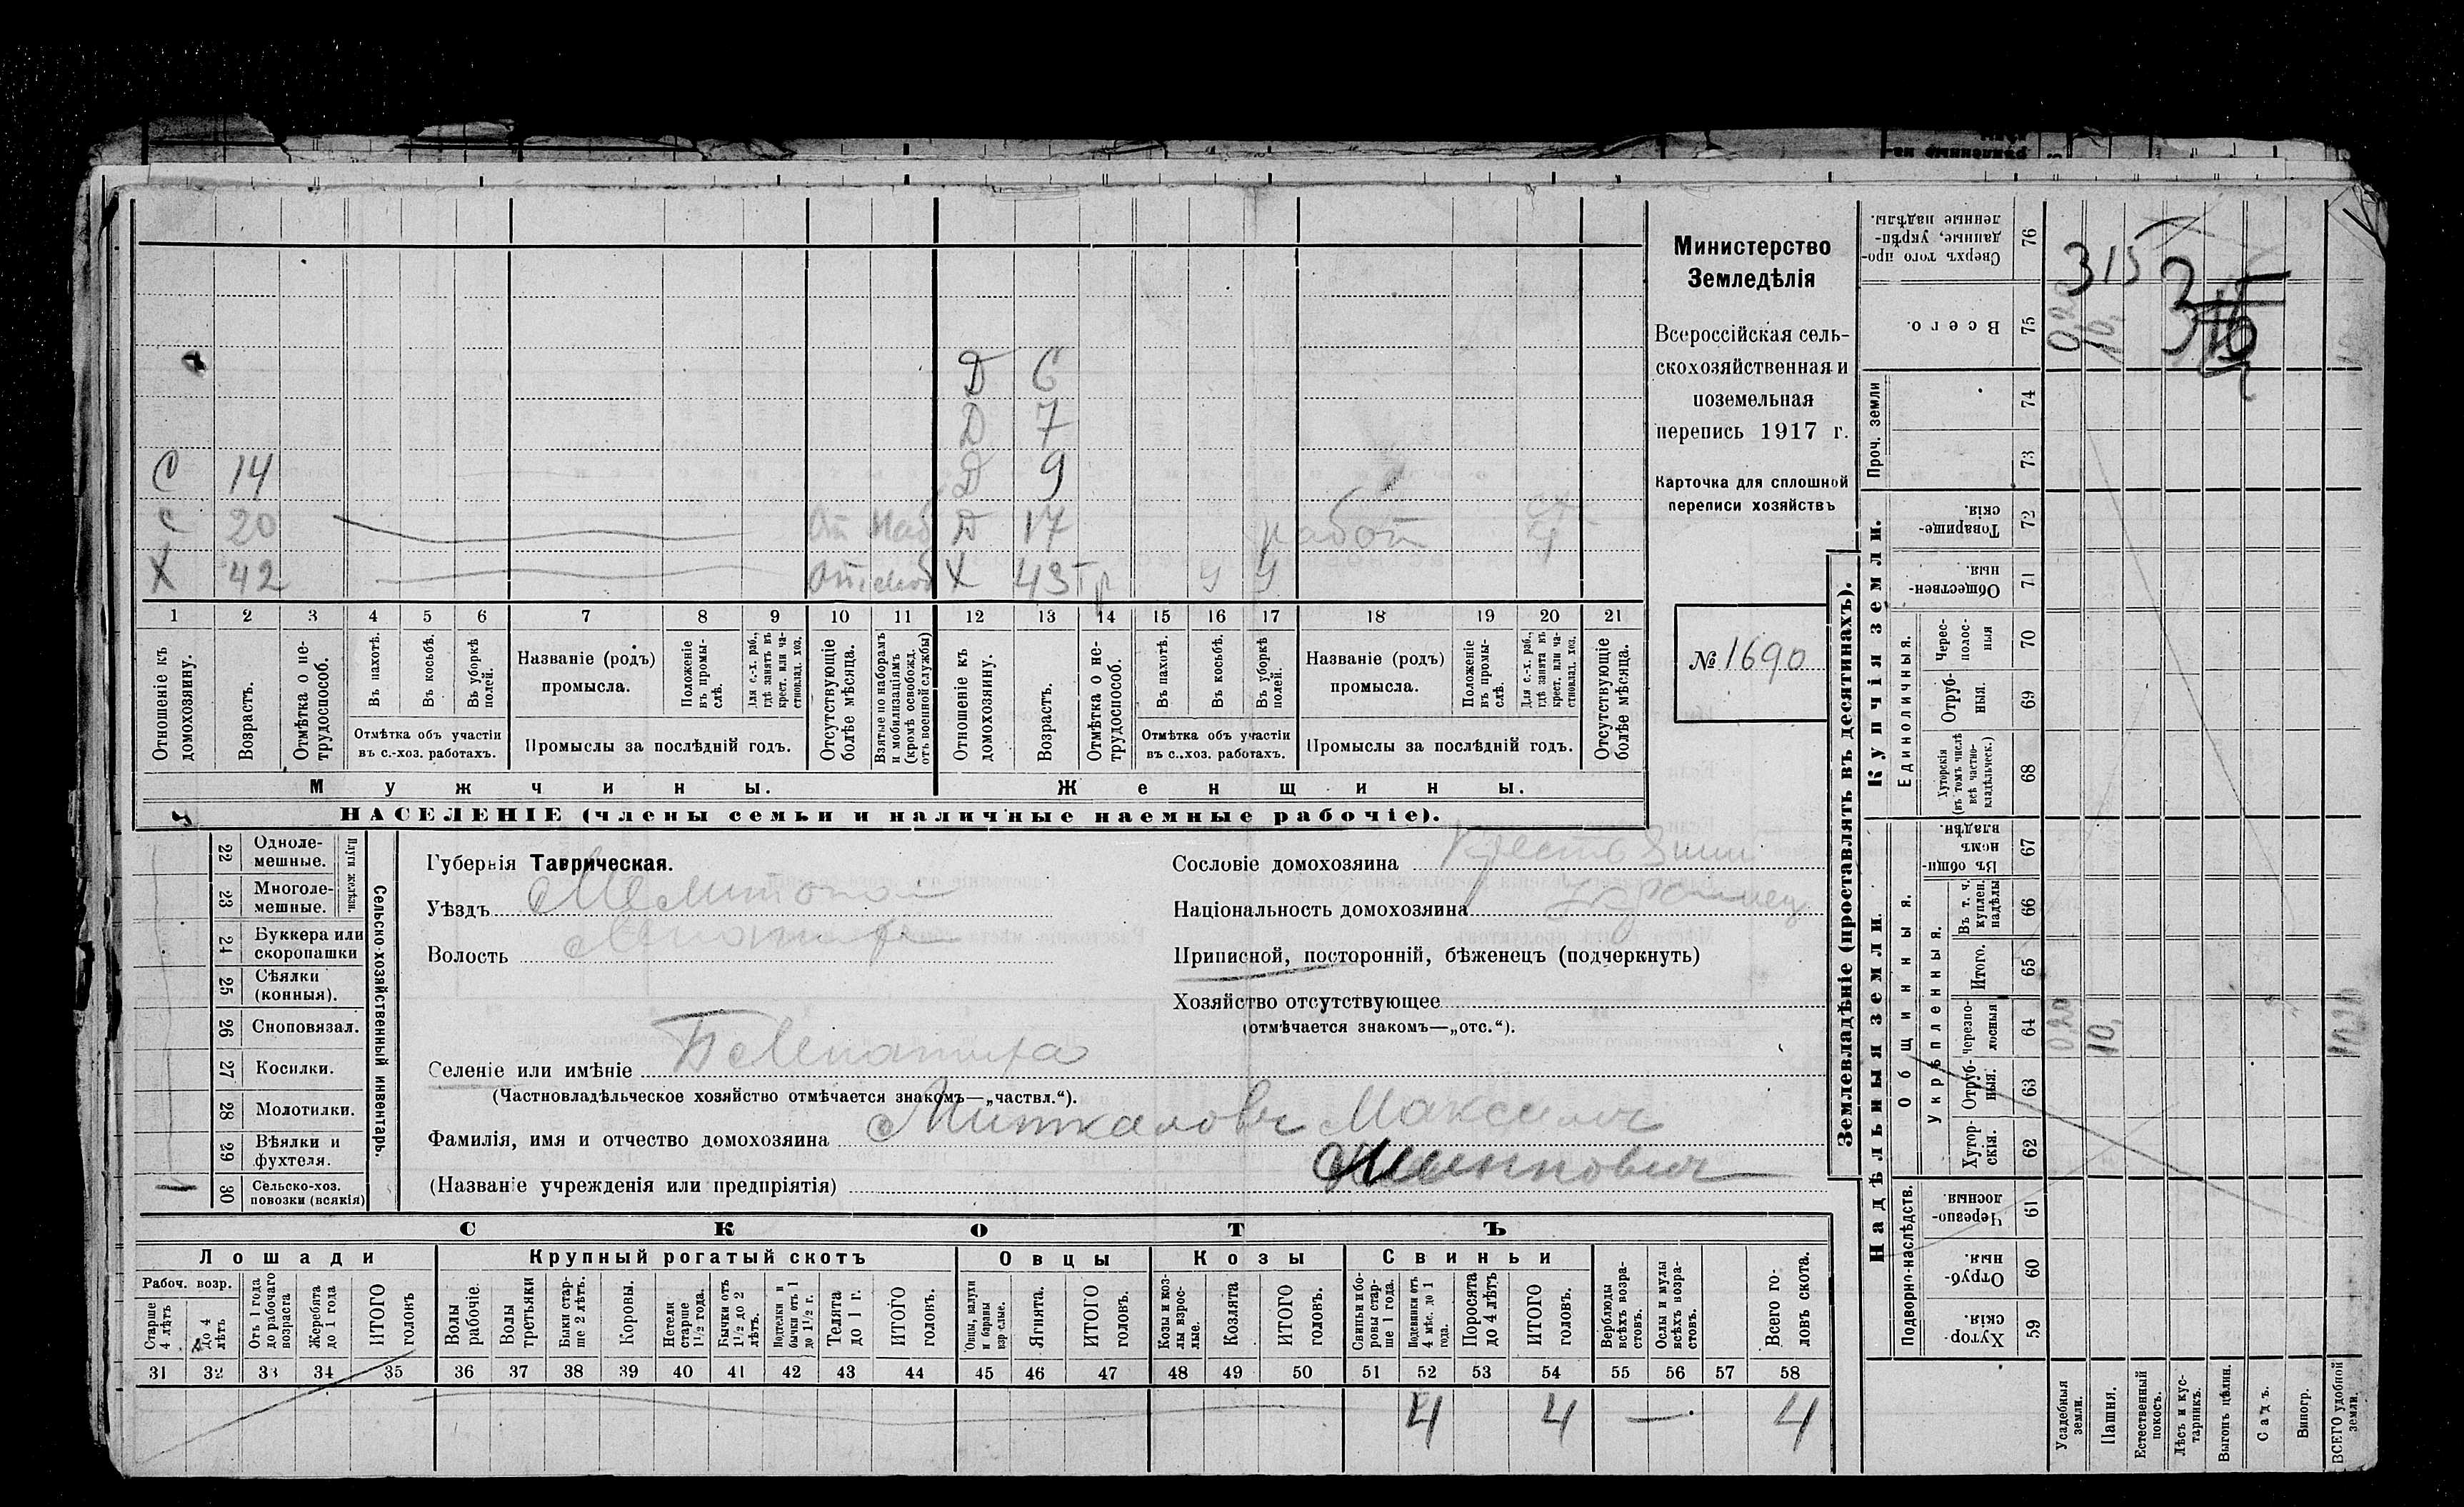 Д 6
Д 7
С 14 Д 9
С 20 Д 17
Х 42 Х 43
1 2 3 4 5 6 7 8 9 10 11 12 13 14 15 16 17 18 19 20 21
Отношеніе къ домохозяину.
Возрастъ.
Отмѣтка о не-трудоспособ.
Въ пахотѣ.
Въ косьбѣ.
Въ уборкѣ полей.
Отмѣтка объ участіи въ с.-хоз. работахъ.
Названіе (родъ) промысла.
Положеніе въ промы-слѣ.
Для с.-х. раб., гдѣ занятъ въ крест. или ча-стновлад. хоз.
Промыслы за послѣдній годъ.
Отсутствующіе болѣе мѣсяца.
Взятые по наборамъ и мобилизаціямъ (кромѣ освобожд. отъ военной службы)
Отношеніе къ домохозяину.
Возрастъ.
Отмѣтка о не-трудоспособ.
Въ пахотѣ.
Въ косьбѣ.
Въ уборкѣ полей.
Отмѣтка объ участіи въ с.-хоз. работахъ.
Названіе (родъ) промысла.
Положеніе въ промы-слѣ.
Для с.-х. раб., гдѣ занята въ крест. или ча-стновлад. хоз.
Промыслы за послѣдній годъ.
Отсутствующіе болѣе мѣсяца.
Мужчины. Женщины.
НАСЕЛЕНІЕ (члены семьи и наличные наемные рабочіе).
Министерство
Земледѣлія
Всероссійская сель-
скохозяйственная и
поземельная
перепись 1917 г.
Карточка для сплошной
переписи хозяйствъ
№ 1690
22 Однолемешные.
23 Многолемешные.
Плуги желѣзн.
24 Буккера или скоропашки
25 Сѣялки (конныя).
26 Сноповязал.
27 Косилки.
28 Молотилки.
29 Вѣялки и фухтеля.
30 Сельско-хоз. повозки (всякія) 1
Сельско-хозяйственный инвентарь.
Губернія Таврическая.
Уѣздъ Мелитопол
Волость
Селеніе или имѣніе Б Лепатиха
(Частновладѣльческое хозяйство отмѣчается знакомъ—„частвл.“).
Фамилія, имя и отчество домохозяина Миткаловъ Максимъ
(Названіе учрежденія или предпріятія)
Сословіе домохозяина
Національность домохозяина
Приписной, посторонній, бѣженецъ (подчеркнуть)
Хозяйство отсутствующее
(отмѣчается знакомъ—„отс.“).
СКОТЪ
Лошади Крупный рогатый скотъ Овцы Козы Свиньи
Рабоч. возр.
Старше 4 лѣтъ
до 4 лѣтъ
Отъ 1 года до рабочаго возраста
Жеребята до 1 года
ИТОГО головъ
Волы рабочіе.
Волы третьяки
Быки стар-ше 2 лѣтъ.
Коровы.
Нетели старше 1½ года.
Бычки отъ 1½ до 2 лѣтъ.
Подтелки и бычки отъ 1 до 1½ г.
Телята до 1 г.
ИТОГО головъ.
Овцы, валухи и бараны взрослые.
Ягнята.
ИТОГО головъ.
Козы и коз-лы взрос-лые.
Козлята
ИТОГО головъ.
Свиньи и бо-ровы стар-ше 1 года.
Подсвинки отъ 4 мѣс. до 1 года.
Поросята до 4 лѣтъ
ИТОГО головъ.
Верблюды всѣхъ возра-стовъ.
Ослы и мулы всѣхъ возра-стовъ.
Всего го-ловъ скота.
31 32 33 34 35 36 37 38 39 40 41 42 43 44 45 46 47 48 49 50 51 52 53 54 55 56 57 58
4 4 — 4
Землевладѣніе (проставлять въ десятинахъ).
Купчія земли.
Надѣльныя земли.
Сверхъ того про-данные, укрѣп-ленные надѣлы. 76
Всего. 75
Проч. земли 74 73
Товарище-скія. 72
Обществен-ныя 71
Единоличныя.
Черес-полос-ныя 70
Отруб-ныя. 69
Хуторскія (въ томъ числѣ всѣ частно-владѣльческ.) 68
Общинныя.
Въ общи-номъ владѣн. 67
Укрѣпленныя.
Въ т. ч. куплен. надѣлы 66
Итого. 65
Черезпо-лосныя 64
Отруб-ныя. 63
Хутор-скія. 62
Подворно-наслѣдств.
Черезпо-лосныя. 61
Отруб-ныя. 60
Хутор-скія. 59
315
10,
Усадебныя земли.
Пашня.
Естественный покосъ.
Лѣсъ и кус-тарникъ.
Выгонъ цѣлин.
Садъ.
Виногр.
ВСЕГО удобной земли.